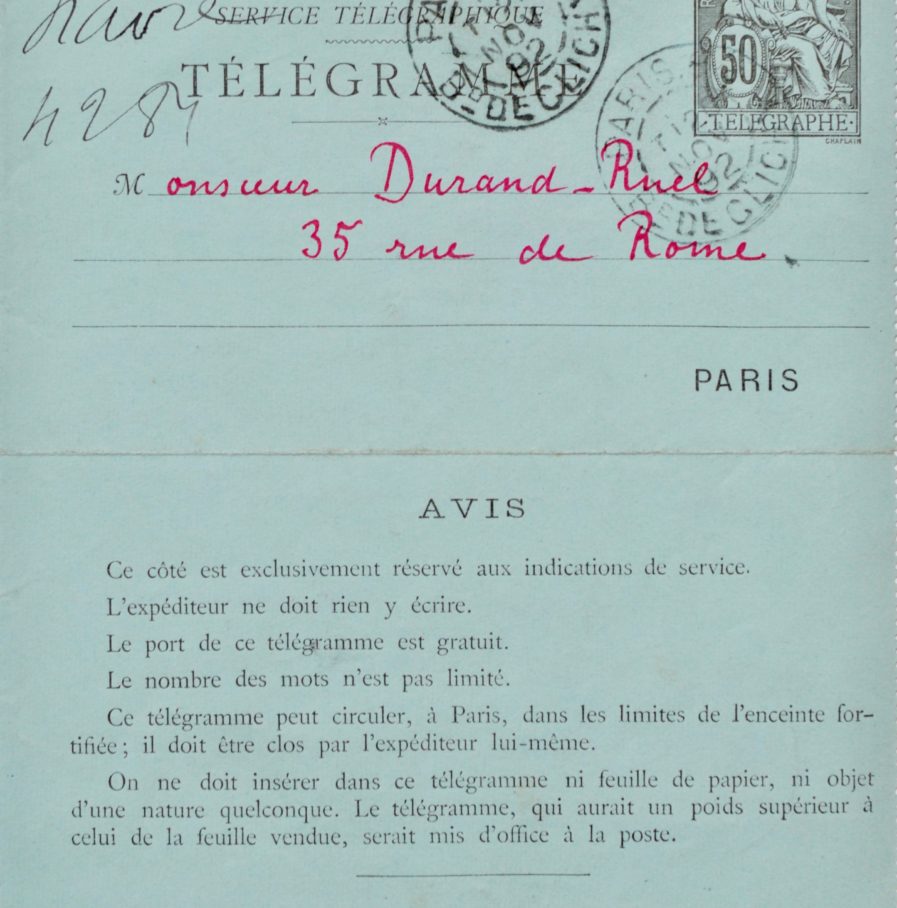 Havre
SERVICE TÉLÉGRAPHIQUE
TÉLÉGRAMME
4284
50
TÉLÉGRAPHE
CHAPLAIN
PARIS
NOV
92
DE CLICH
PARIS
NOV
92
DE CLICH
Monsieur Durand-Ruel
35 rue de Rome
PARIS
AVIS
Ce côté est exclusivement réservé aux indications de service.
L'expéditeur ne doit rien y écrire.
Le port de ce télégramme est gratuit.
Le nombre des mots n'est pas limité.
Ce télégramme peut circuler, à Paris, dans les limites de l'enceinte for-
tifiée; il doit être clos par l'expéditeur lui-même.
On ne doit insérer dans ce télégramme ni feuille de papier, ni objet
d'une nature quelconque. Le télégramme, qui aurait un poids supérieur à
celui de la feuille vendue, serait mis d'office à la poste.